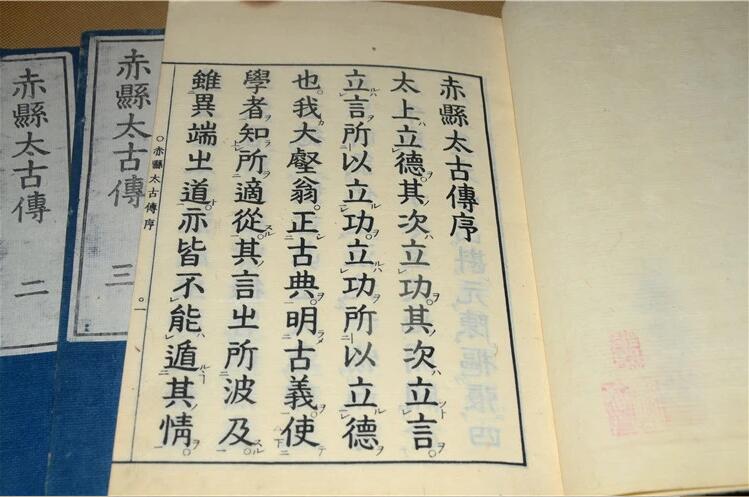 赤縣太古傳序
太上立德其次立功其次立言
立言所以立功立功所以立德
也我大壑翁正古典明古義使
學者知所適從其言㞢所波及
雖異端㞢道亦皆不能遁其情
○赤縣太古傳序 ○一
赤縣太古傳 三
赤縣太古傳 二